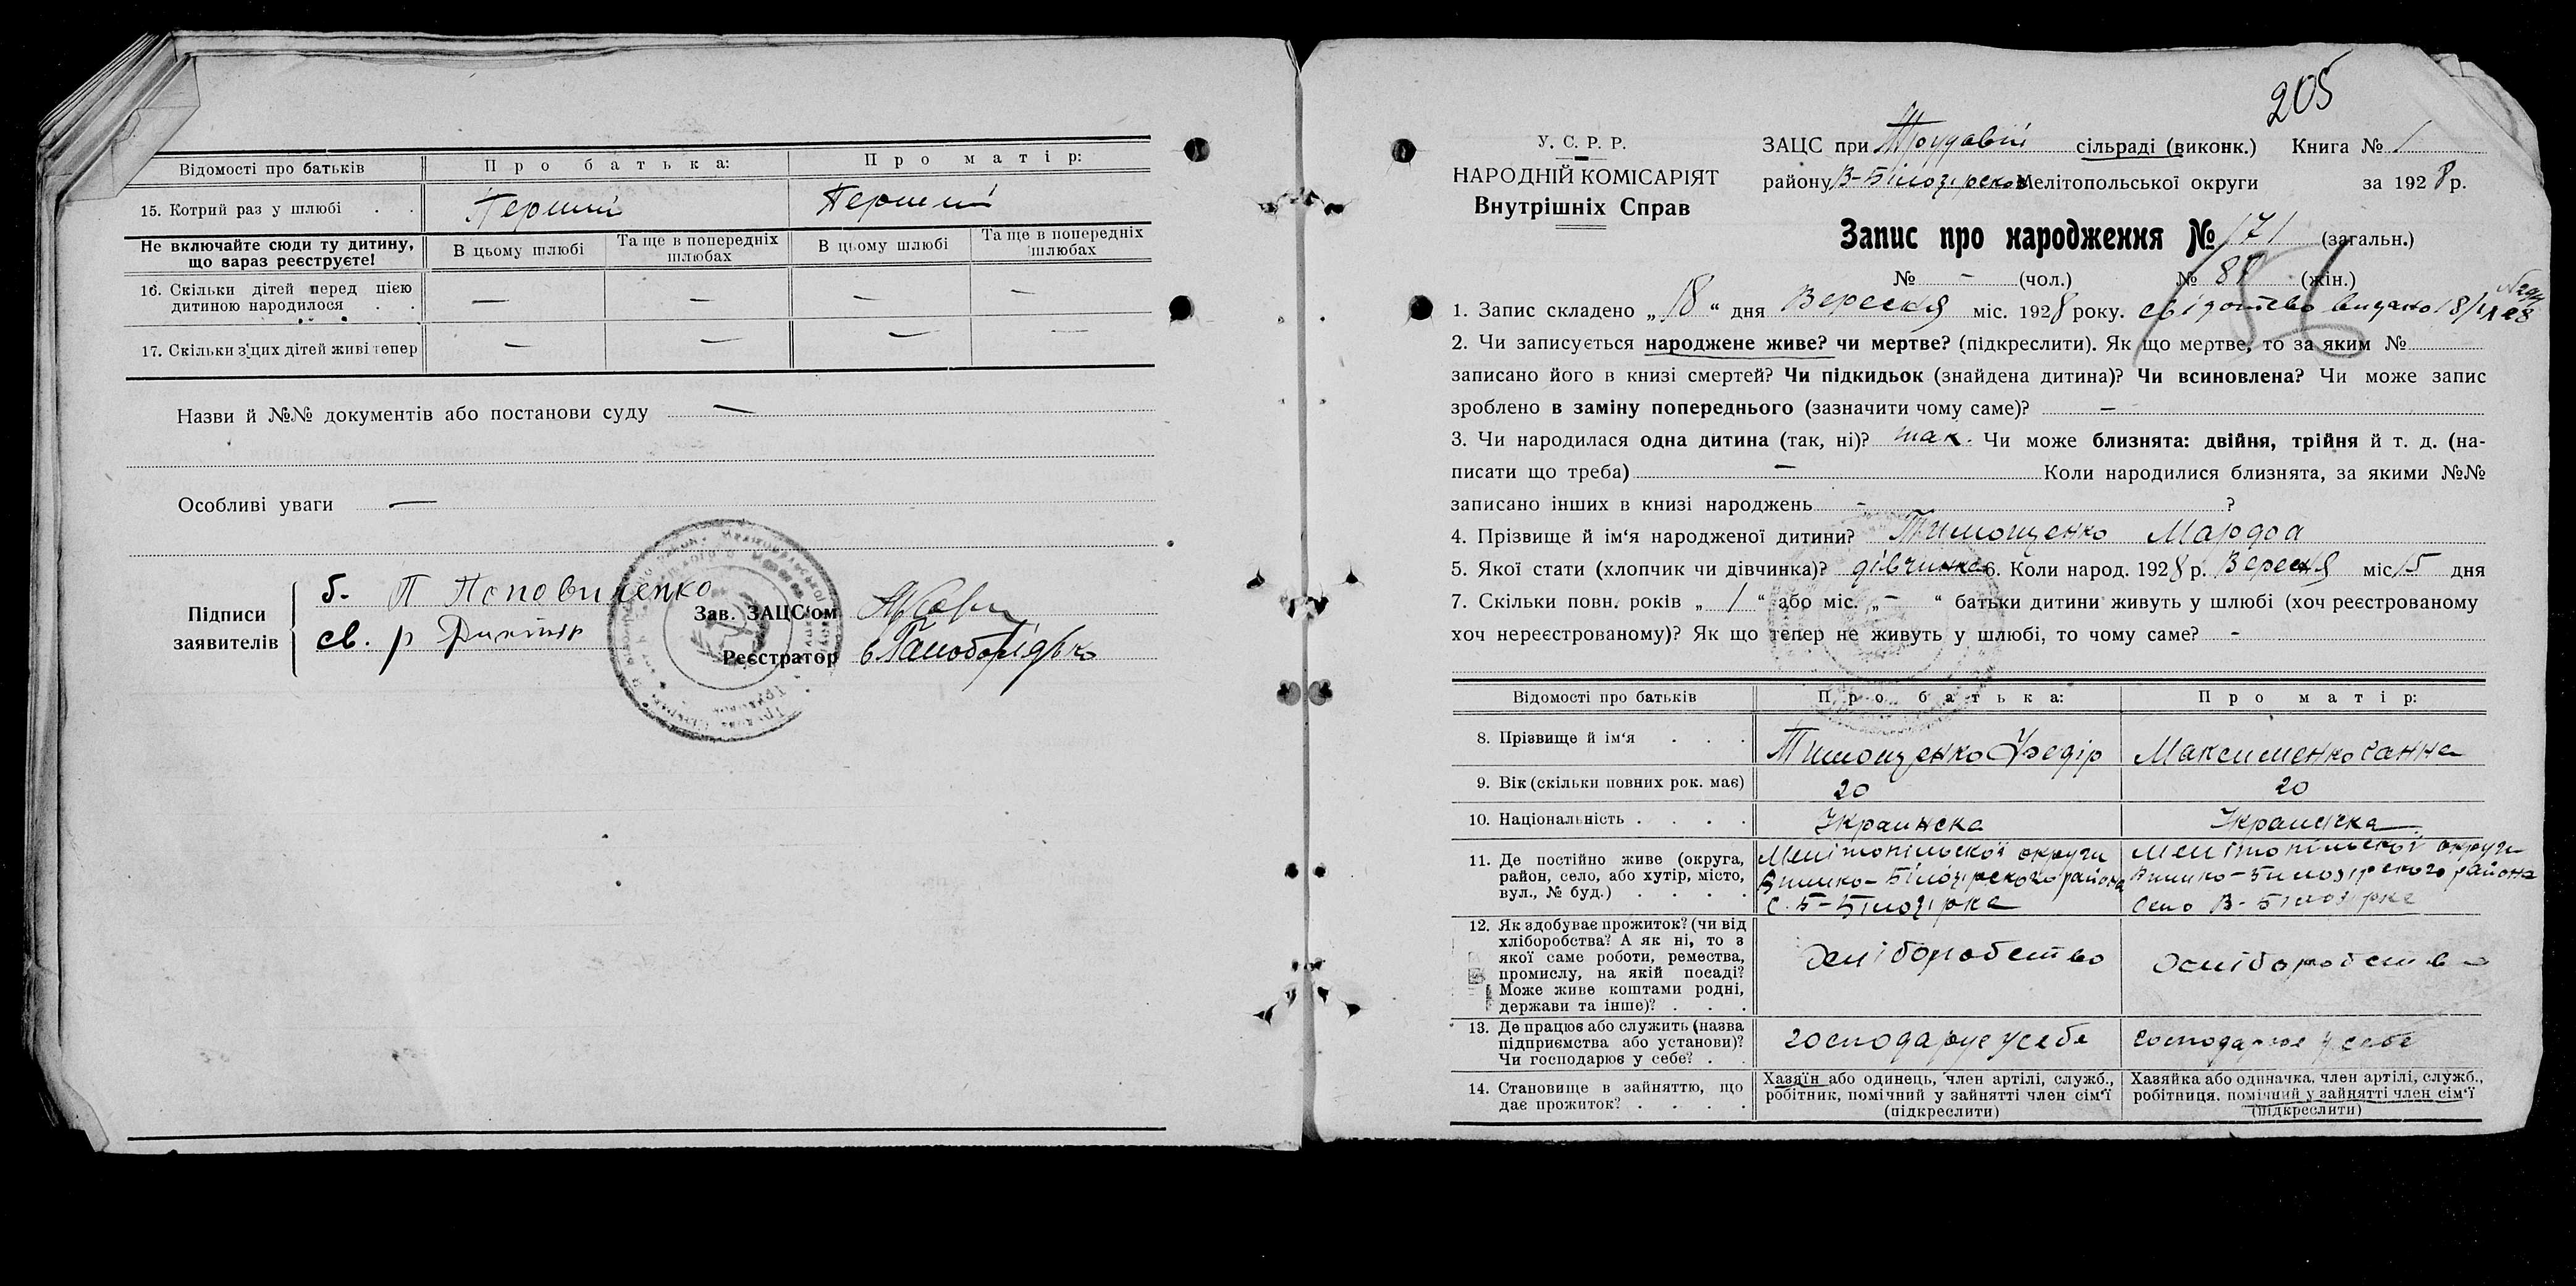 Відомості про батьків
Про батька:
Про матір:
15. Котрий раз у шлюбі . .
Перший
Перший
Не включайте сюди ту дитину, що вараз реєструєте!
В цьому шлюбі
Та ще в попередніх шлюбах
В цьому шлюбі
Та ще в попередніх шлюбах
16. Скільки дітей перед цією
дитиною народилося . .
— — — —
17. Скільки з'цих дітей живі тепер
— — — —
Назви й №№ документів або постанови суду —
Особливі уваги —
Підписи
заявителів
б. П
св. р
Зав. ЗАЦС'ом
Реєстратор
205
У. С. Р. Р.
НАРОДНІЙ КОМІСАРІЯТ
Внутрішніх Справ
ЗАЦС при Трудовій сільраді (виконк.) Книга № 1
району В-Білозірсков Мелітопольської округи за 1928 р.
Запис про народження № 171 (загальн.)
№ - (чол.) № (жін.)
1. Запис складено „18“ дня Вересня міс. 1928 року. свідотство видано 18/IX 28
2. Чи записується народжене живе? чи мертве? (підкреслити). Як що мертве, то за яким №
записано його в книзі смертей? Чи підкидьок (знайдена дитина)? Чи всиновлена? Чи може запис
зроблено в заміну попереднього (зазначити чому саме)? —
3. Чи народилася одна дитина (так, ні)? так. Чи може близнята: двійня, трійня й т. д. (на-
писати що треба) — Коли народилися близнята, за якими №№
записано інших в книзі народжень - ?
4. Прізвище й ім'я народженої дитини? Тимощенко
5. Якої стати (хлопчик чи дівчинка)? дівчинка 6. Коли народ. 1928 р. Вересня міс 15 дня
7. Скільки повн. років „1“ або міс. „-“ батьки дитини живуть у шлюбі (хоч реєстрованому
хоч нереєстрованому)? Як що тепер не живуть у шлюбі, то чому саме? -
Відомості про батьків
Про батька:
Про матір:
8. Прізвище й ім'я . . .
Тимощенко Федір
Максименко Ганна
9. Вік (скільки повних рок. має)
20
20
10. Національність . . . .
Украинска
Украинска
11. Де постійно живе (округа,
район, село, або хутір, місто,
вул., № буд.) . . . .
Мелітопільскої округи
Вилико-Білозірского района
с. Б-Білозірка
Мелітопільскої округи
Вилико-Билозірского района
Село В-Білозірка
12. Як здобуває прожиток? (чи від
хліборобства? А як ні, то з
якої саме роботи, ремества,
промислу, на якій посаді?
Може живе коштами родні,
держави та інше)? . . .
Хліборобство
Хліборобство
13. Де працює або служить (назва
підприємства або установи)?
Чи господарює у себе? . .
господарує у себе
господарює у себе
14. Становище в зайняттю, що
дає прожиток? . . . .
Хазяїн або одинець, член артілі, служб.,
робітник, помічний у зайнятті член сім'ї
(підкреслити)
Хазяйка або одиначка, член артілі, служб.,
робітниця, помічний у зайнятті член сім'ї
(підкреслити)